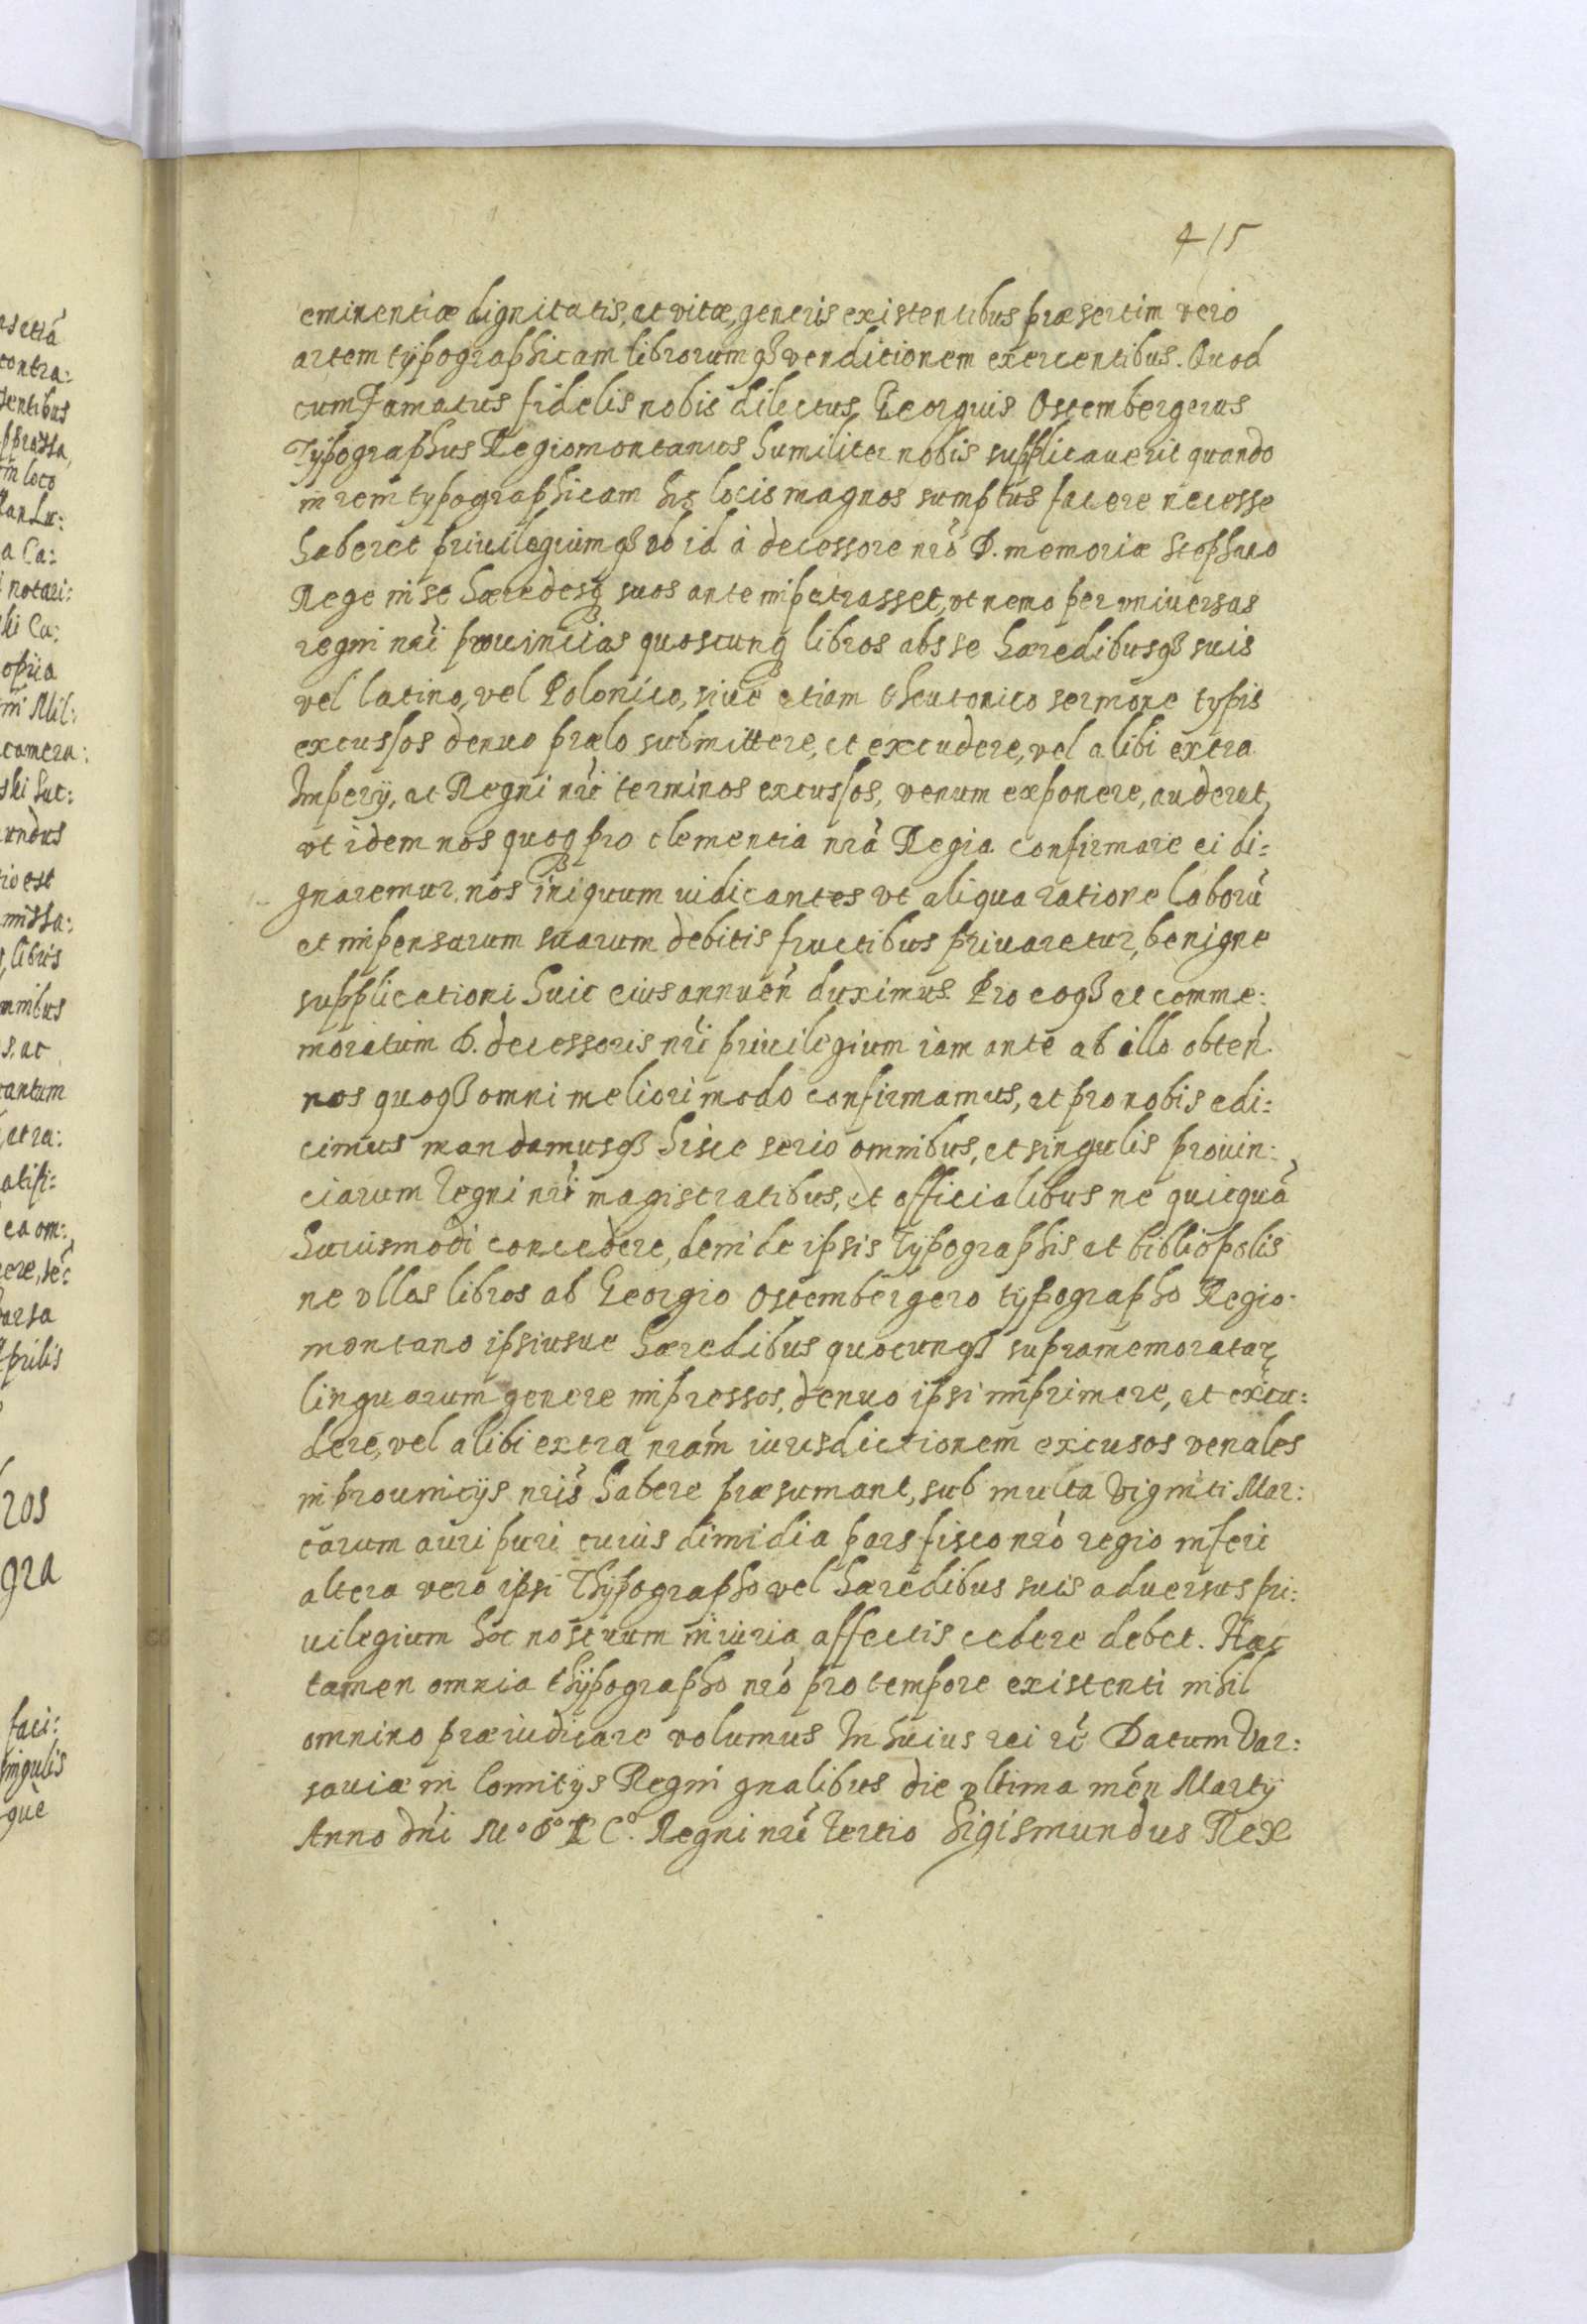 415
eminentiæ dignitatis, et vitæ, generis existentibus præsertim vero
artem typographicam librorumq3 venditionem exercentibus. Quod
cum Famatus fidelis nobis dilectus Georguis Ostembergerus
Typographus Regiomontanus humiliter nobis supplicauerit quando
in rem typographicam his locis magnos sumptus facere necesse
haberet priuilegiumq3 ob id à decessore nrõ D. memoriæ Stephano
Rege in se hæredesq3 suos ante impetrasset, vt nemo per vniuersas
regni nri prouincias quoscunq3 libros abs se hæredibusq3 suis
vel latino, vel Polonico, siue etiam theutonico sermone typis
excussos denuo prælo submittere, et excudere, vel alibi extra
Impery, ac Regni nri terminos excussos, venum exponere, auderet,
vt idem nos quoq3 pro clementia nrã Regia confirmare ei di:
gnaremur. nos iniquum iudicantes vt aliqua ratione laborũ
et impensarum suarum debitis fructibus priuaretur, benigne
supplicationi huic eius annueñ duximus. Pro eoq3 ac comme:
moratum D. decessoris nri priuilegium iam ante ab illo obteñ
nos quoq3 omni meliori modo confirmamus, et pro nobis edi:
cimus mandamusq3 hisce serio omnibus, et singulis prouin:
ciarum regni nri magistratibus, et officialibus ne quicquã
huiusmodi concedere, deinde ipsis typographis et bibliopolis
ne vllos libros ab Georgio Ostembergero typographo Regio
montano ipsiusue hæredibus quocunq3 supramemoratar
linguarum genere impressos, denuo ipsi imprimere, et excu:
dere, vel alibi extra nrãm iurisdictionem excusos venales
in prouincys nris habere præsumant, sub multa viginti Mar:
carum auri puri cuius dimidia pars fisco nrõ regio inferi
altera vero ipsi Thypographo vel hæredibus suis aduersus pri:
uilegium hoc nostrum iniuria affectis cedere debet. Hæc
tamen omnia thypographo nrõ pro tempore existenti nihil
omnino præiudicare volumus In huius rei Datum Var:
sauiæ in Comitys Regni gnalibus die vltima meñ Marty
Anno dni Regni nri tertio Sigismundus Rex